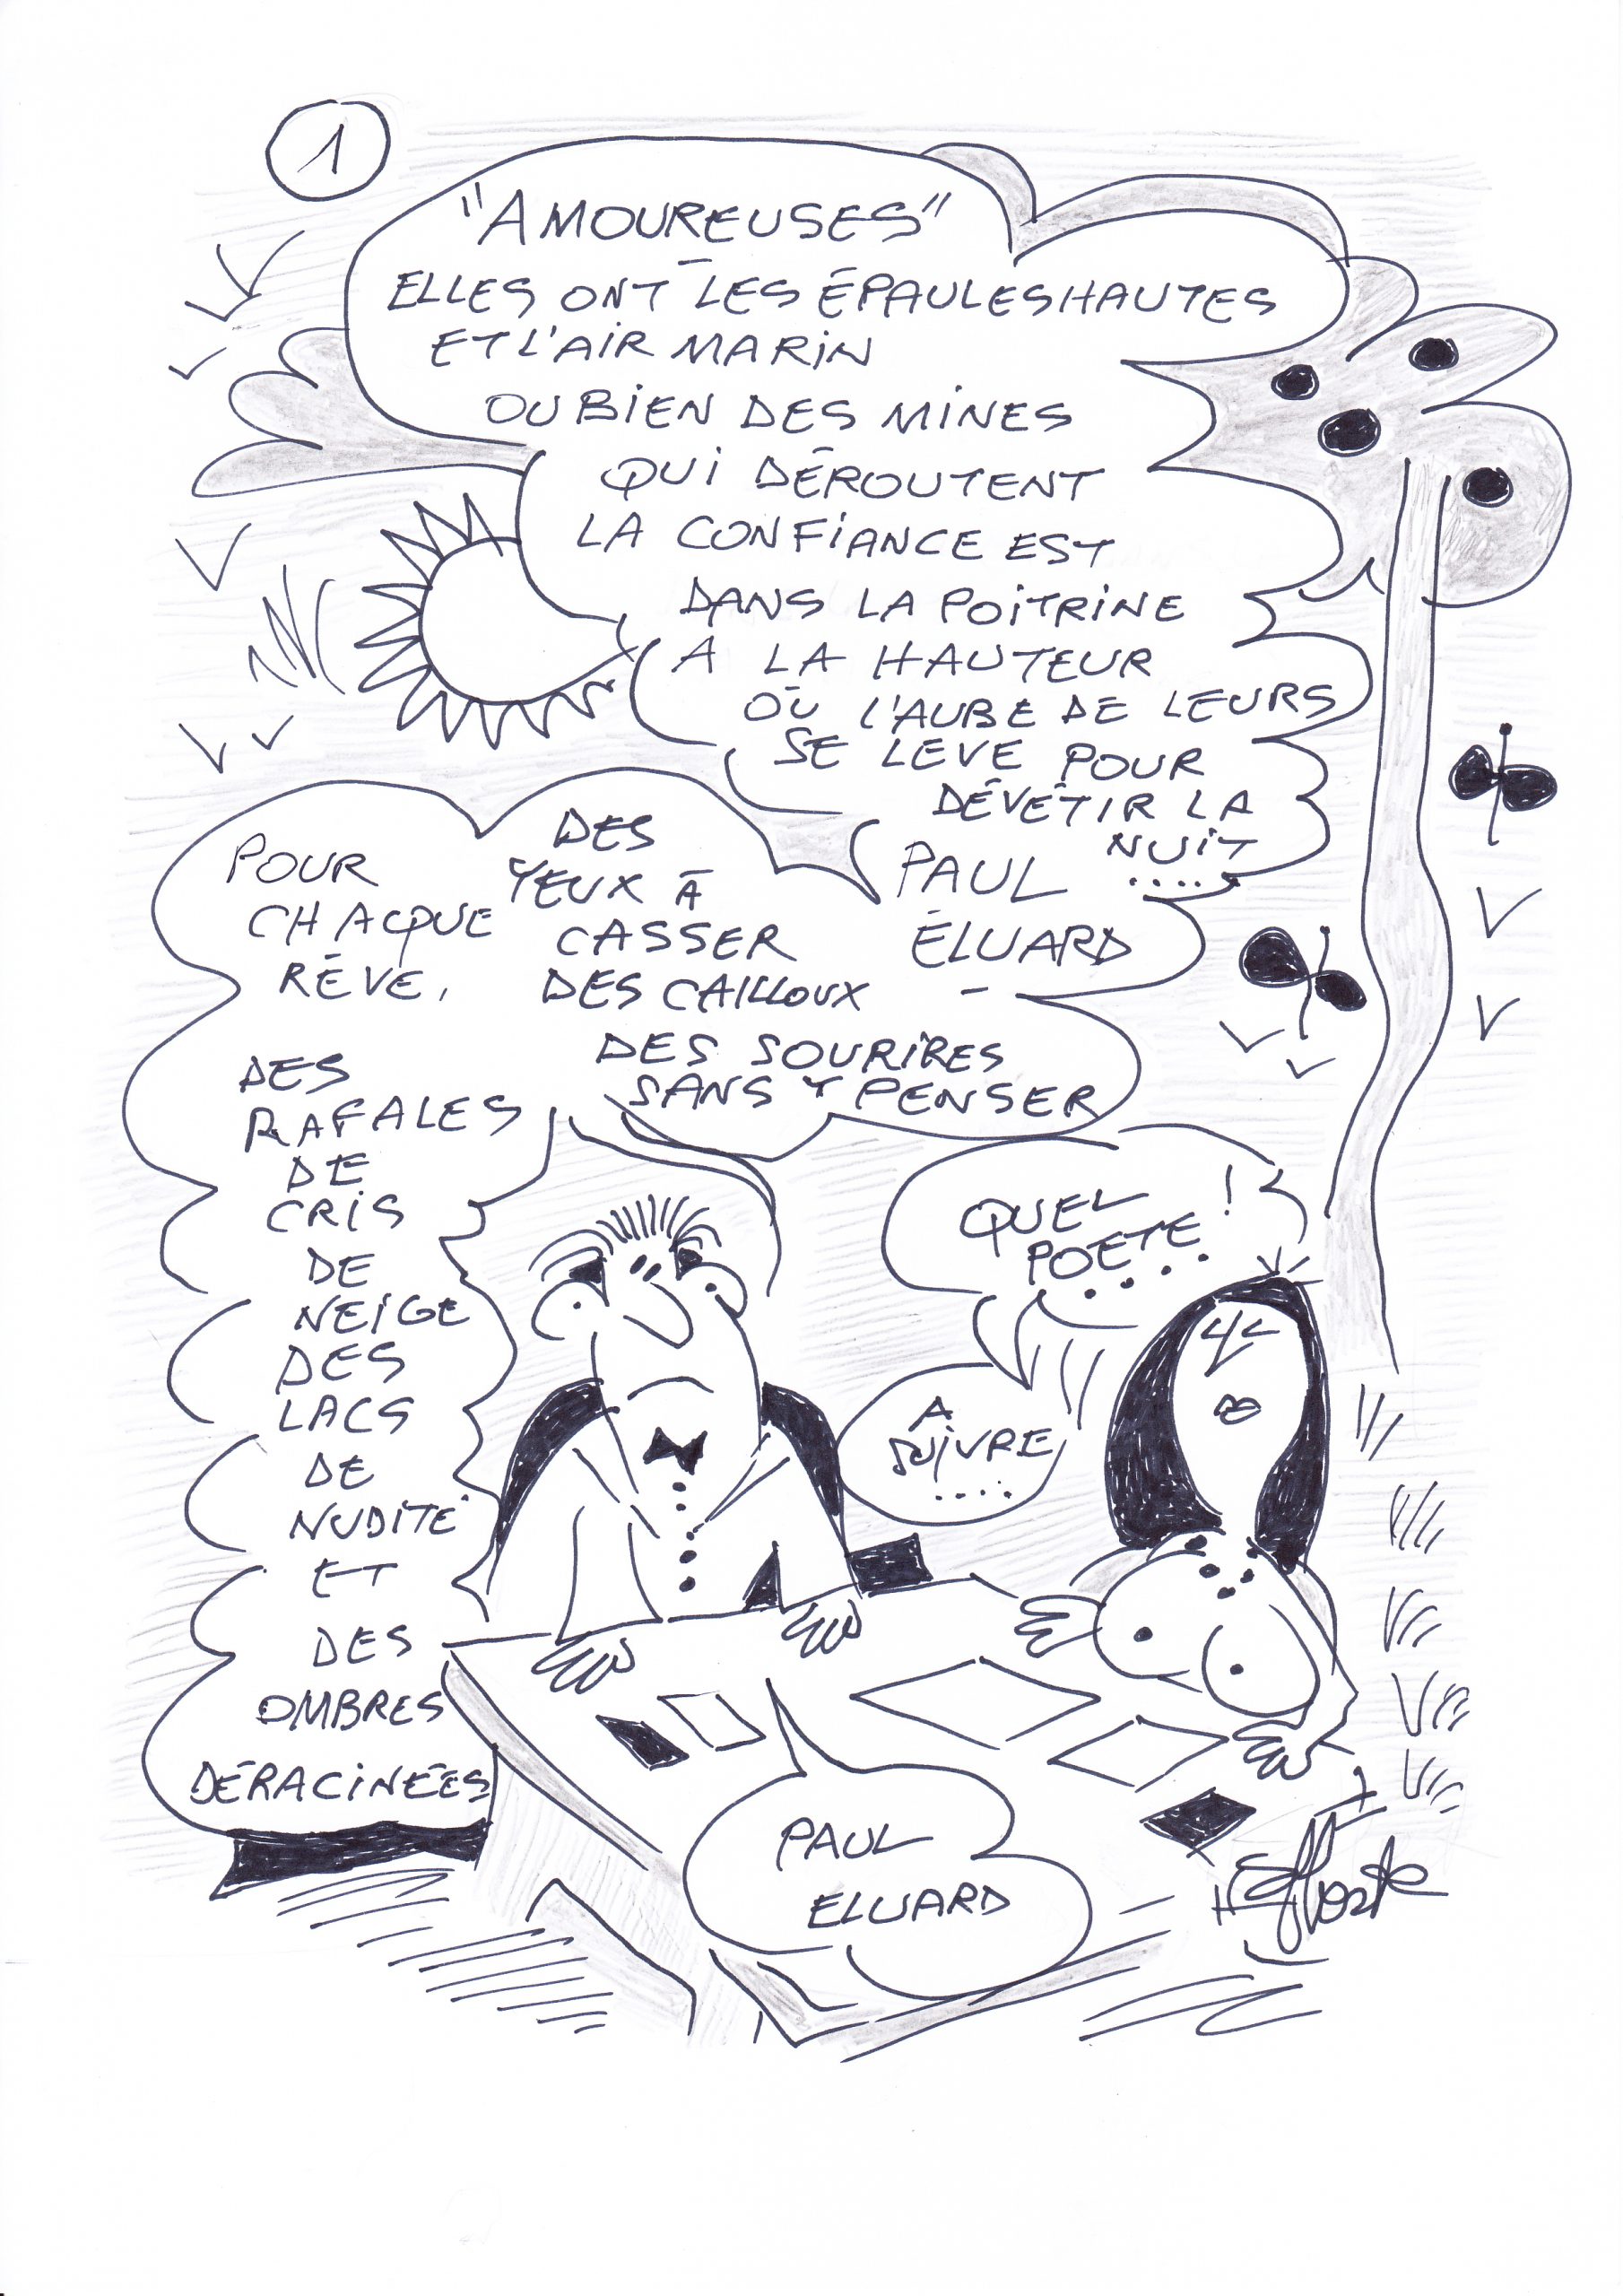 1
"AMOUREUSES"
ELLES ONT LES ÉPAULES HAUTES
ET L'AIR MARIN
OU BIEN DES MINES
QUI DÉROUTENT
LA CONFIANCE EST
DANS LA POITRINE
A LA HAUTEUR
OÙ L'AUBE DE LEURS
SE LEVE POUR
DÉVÊTIR LA
NUIT
.....
PAUL
ÉLUARD
-
DES
YEUX À
CASSER
DES CAILLOUX
DES SOURIRES
SANS Y PENSER
POUR
CHACQUE
RÊVE,
DES
RAFALES
DE
CRIS
DE
NEIGE
DES
LACS
DE
NUDITÉ
ET
DES
OMBRES
DÉRACINÉES
QUEL
POETE !
....
A
SUIVRE
....
PAUL
ELUARD